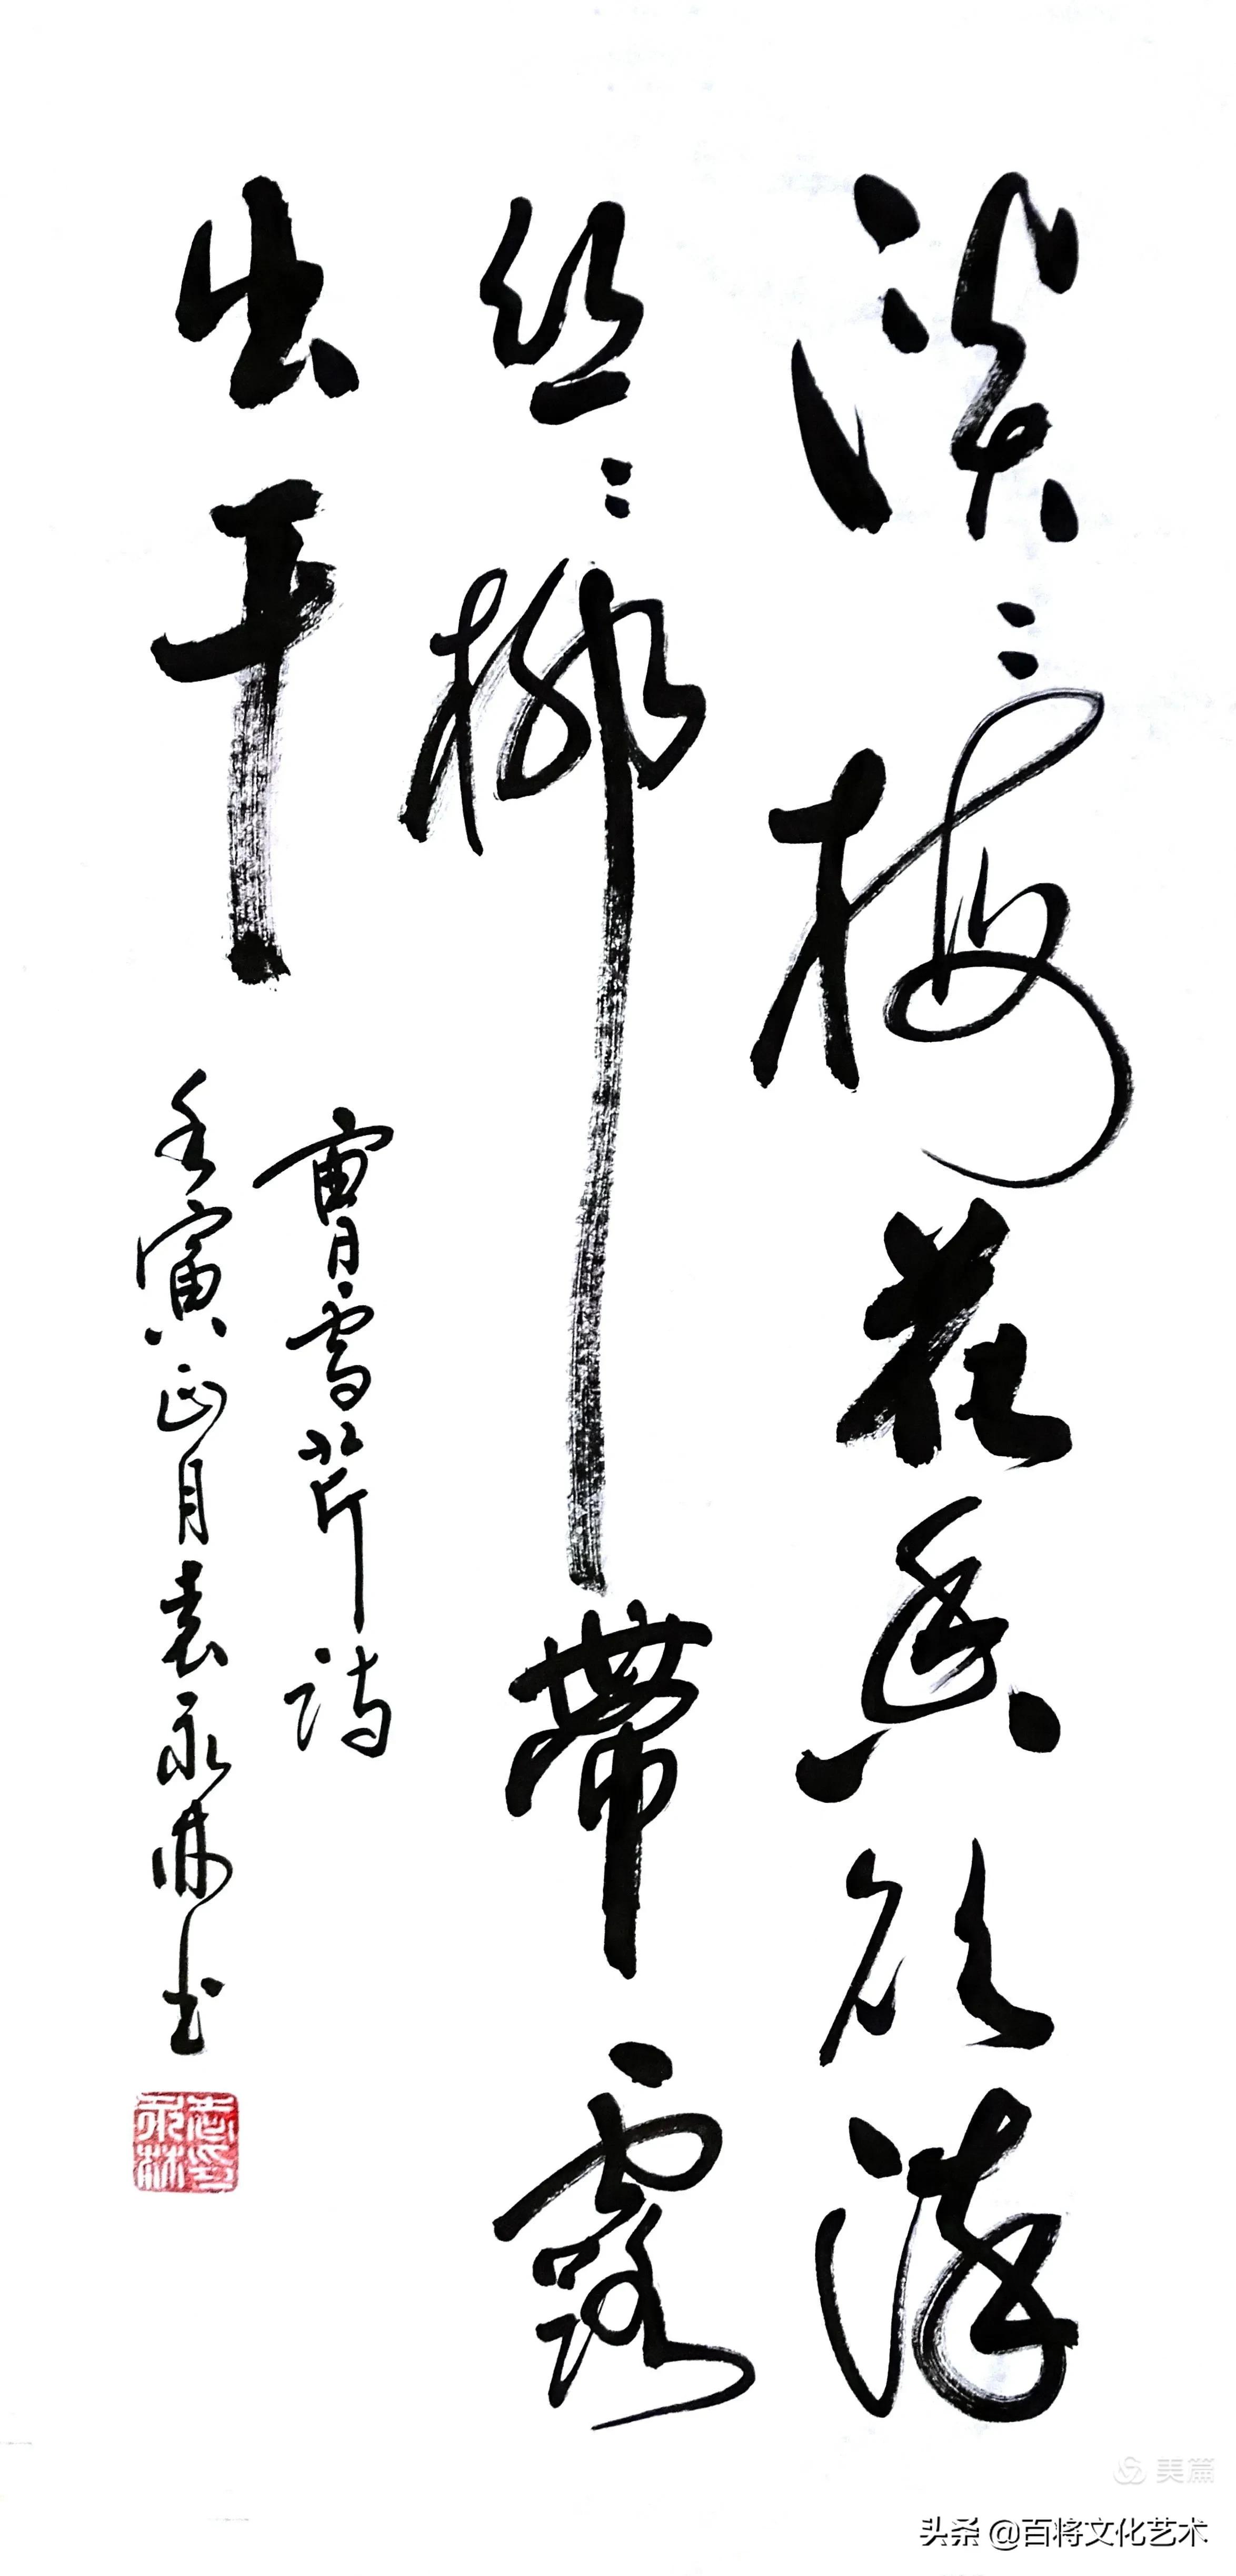 淡淡梅花香欲染
丝丝柳帶露
出干
曹雪芹诗
壬寅正月袁永林书
美篇
头条 @百将文化艺术